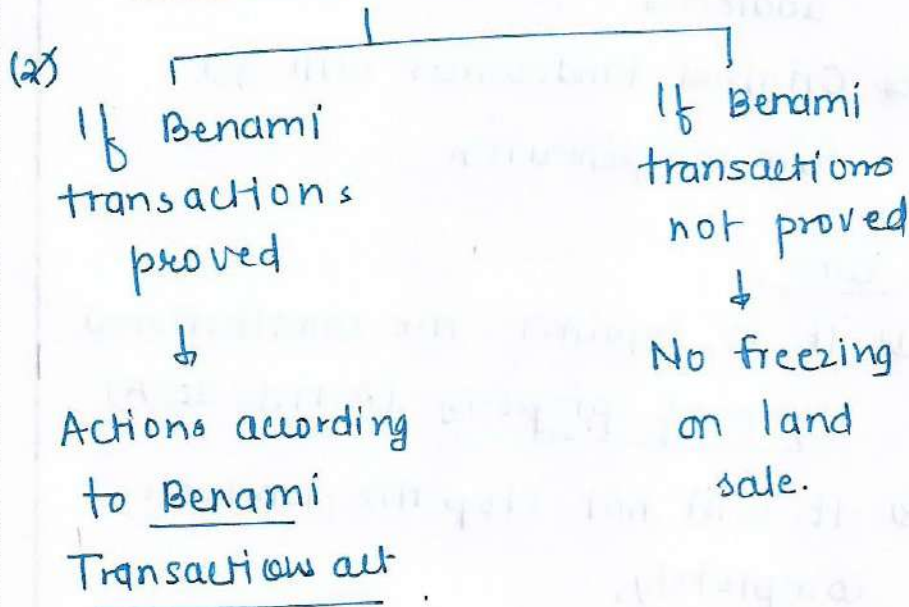 (2)
If Benami
transactions
proved
↓
Actions according
to Benami
Transactions act.
If Benami
transactions
not proved
↓
No freezing
on land
sale.